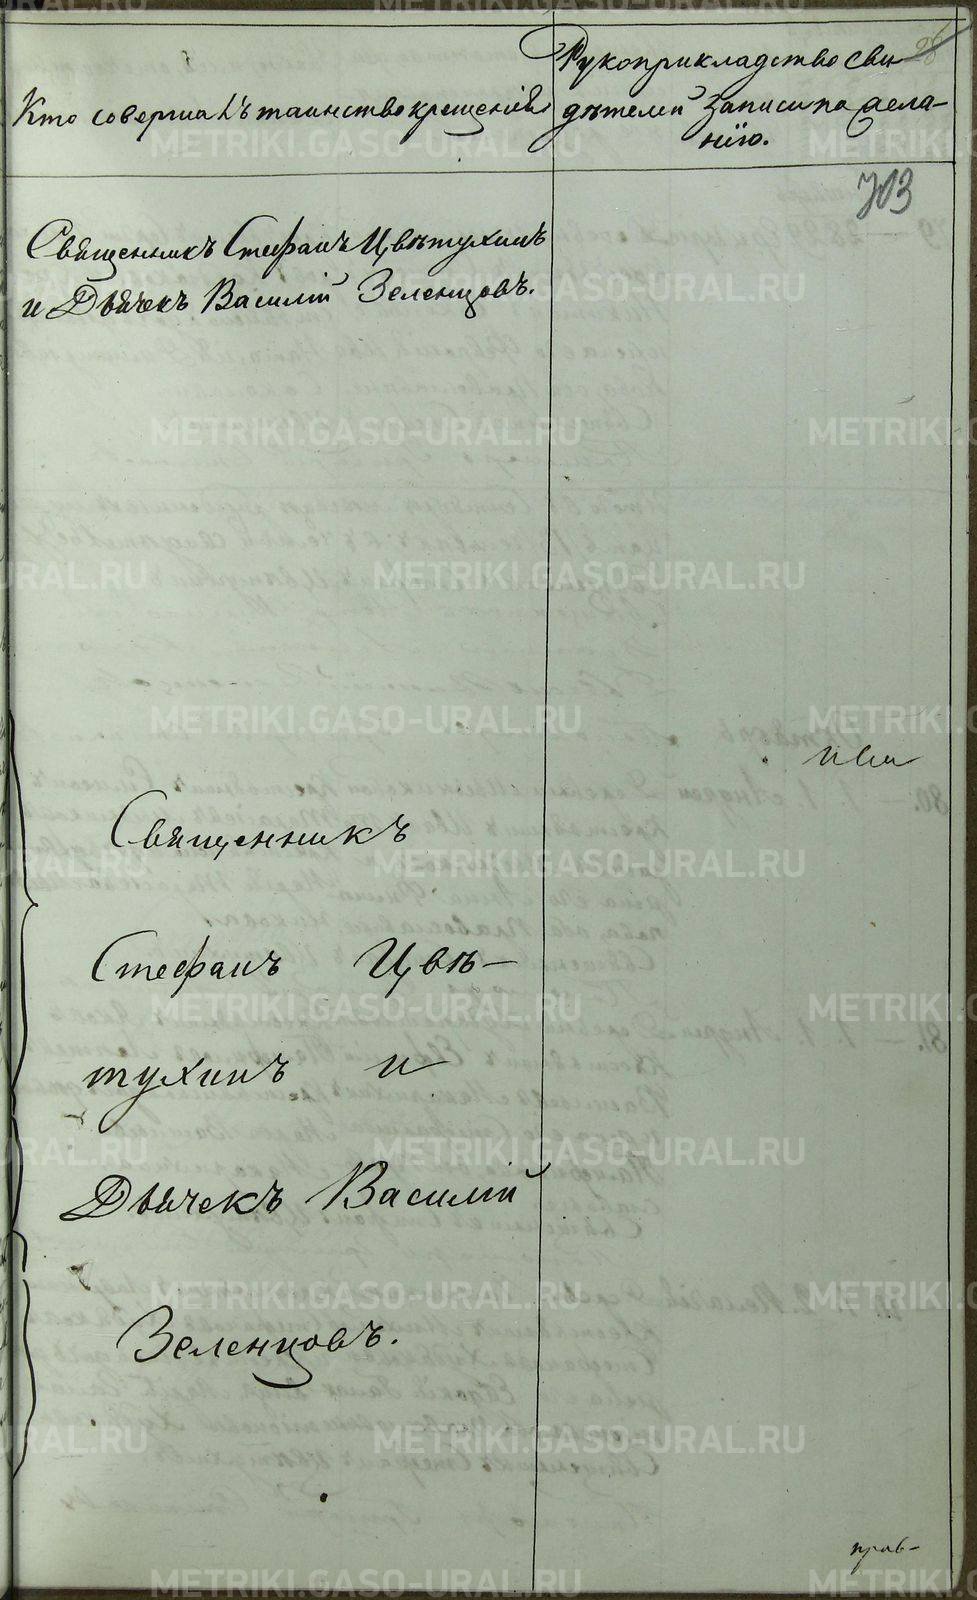 Кто совершалъ таинство крещенія
Рукоприкладство сви
дѣтелей записи по жела-
нію.
703
Священникъ Стефанъ Цвѣтухинъ
и Дьячекъ Василій Зеленцовъ.
Священникъ
Стефанъ Цвѣ-
тухинъ и
Дьячекъ Василій
Зеленцовъ.
прав-
METRIKI.GASO-URAL.RU